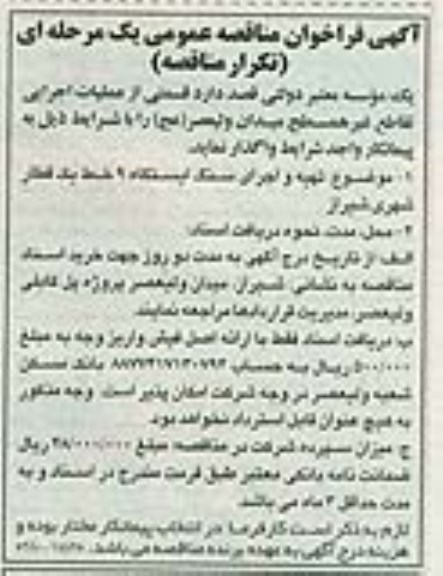 آگهی فراخوان مناقصه عمومی یک مرحله ای
(تکرار مناقصه)
یک مؤسسه معتبر دولتی قصد دارد قسمتی از عملیات اجرایی
تقاطع غیر همسطح میدان ولیعصر(عج) را با شرایط ذیل به
پیمانکار واجد شرایط واگذار نماید.
۱- موضوع: تهیه و اجرای سنگ ایستگاه ۹ خط یک قطار
شهری شیراز
۲- محل، مدت، نحوه دریافت اسناد:
الف: از تاریخ درج آگهی به مدت دو روز جهت خرید اسناد
مناقصه به نشانی: شیراز، میدان ولیعصر پروژه پل کابلی
ولیعصر، مدیریت قراردادها مراجعه نمایند.
ب: دریافت اسناد فقط با ارائه اصل فیش واریز وجه به مبلغ
۵۰۰/۰۰۰ ریال به حساب بانک مسکن
شعبه ولیعصر در وجه شرکت امکان پذیر است. وجه مذکور
به هیچ عنوان قابل استرداد نخواهد بود.
ج: میزان سپرده شرکت در مناقصه: مبلغ ۲۸/۰۰۰/۰۰۰ ریال
ضمانت نامه بانکی معتبر طبق فرمت مندرج در اسناد و به
مدت حداقل ۳ ماه می باشد.
لازم به ذکر است کارفرما در انتخاب پیمانکار مختار بوده و
هزینه درج آگهی به عهده برنده مناقصه می باشد.